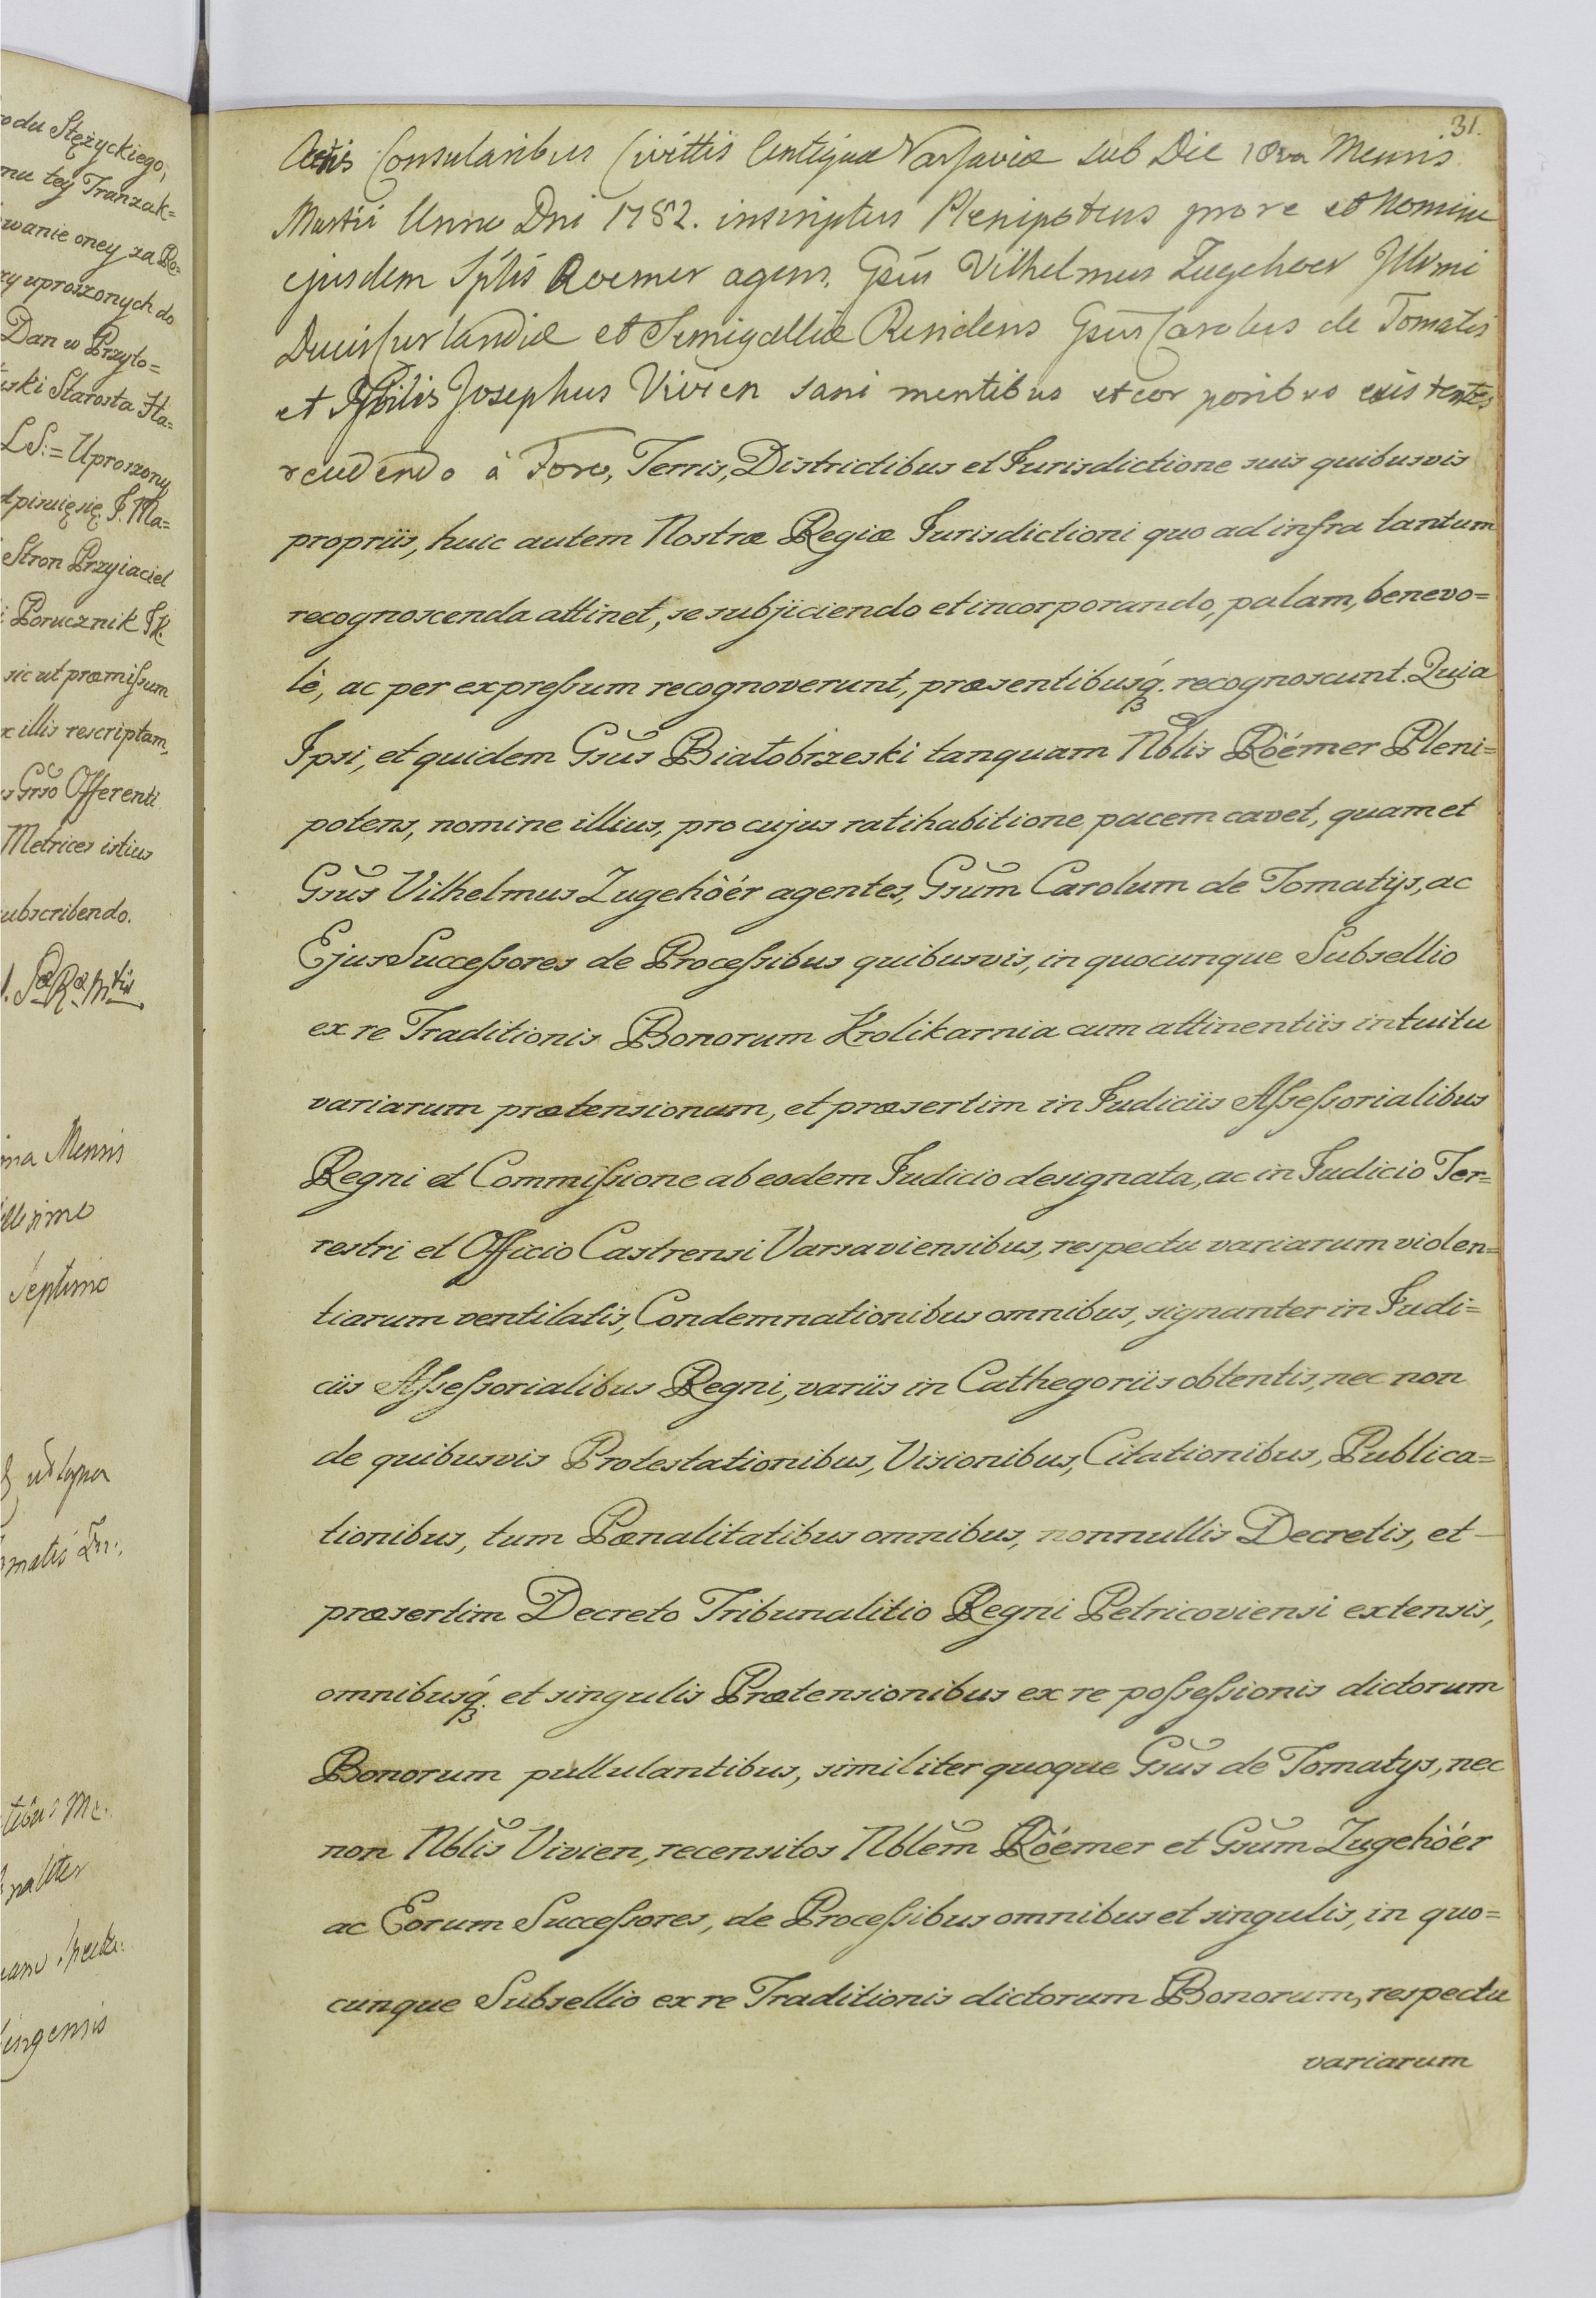 odu Stężyckiego,
mu tey Tranzak=
wanie oney za Re=
zy uproszonych do
Dan w Przyto=
ski Starosta Sta=
LS: = Uproszony
dpisuię się. J. Ma=
Stron Przyiaciel
i Porucznik JK.
sic ut præmiſsum
x illis rescriptam,
s Grso Offerenti
Metrices istius
subscribendo.
ma Mensis
Septimo
31.
Actis Consularibus Civittis Antiquæ Varsaviæ sub Die 18va Mensis
Martii Anno Dni 1782. inscriptus Plenipotens pro re et Nomine
ejusdem Spblis Roemer agens, Gsus Vilhelmus Zugehoer Jllrmi
Ducis Curlandiæ et Semigalliæ Residens Gsus Carolus de Tomatis
et Nbilis Josephus Vivien sani mentibus et corporibus existentes
recedendo à Foro, Terris, Districtibus et Jurisdictione suis quibusvis
propriis, huic autem Nostræ Regiæ Jurisdictioni quo ad infra tantum
recognoscenda attinet, se subjiciendo et incorporando, palam, benevo=
lè, ac per expreſsum recognoverunt, præsentibusq́. recognoscunt. Quia
Ipsi, et quidem Gsus Białobrzeski tanquam Nblis Röémer Pleni=
potens, nomine illius, pro cujus ratihabitione pacem cavet, quam et
Gsus Vilhelmus Zugehöér agentes, Gsum Carolum de Tomatijs, ac
Ejus Succeſsores de Proceſsibus quibusvis, in quocunque Subsellio
ex re Traditionis Bonorum Krolikarnia cum attinentiis intuitu
variarum prætensionum, et præsertim in Judiciis Aſseſsorialibus
Regni et Commiſsione ab eodem Judicio designata, ac in Judicio Ter=
restri et Officio Castrensi Varsaviensibus, respectu variarum violen=
tiarum ventilatis, Condemnationibus omnibus, signanter in Judi=
ciis Aſseſsorialibus Regni, variis in Cathegoriis obtentis, nec non
de quibusvis Protestationibus, Visionibus, Citationibus, Publica=
tionibus, tum Pœnalitatibus omnibus, nonnullis Decretis, et
præsertim Decreto Tribunalitio Regni Petricoviensi extensis,
omnibusq́. et singulis Prætensionibus ex re poſseſsionis dictorum
Bonorum pullulantibus, similiter quoque Gsus de Tomatys, nec
non Nblis Vivien, recensitos Nblem Röémer et Gsum Zugehöér
ac Eorum Succeſsores, de Proceſsibus omnibus et singulis, in quo=
cunque Subsellio ex re Traditionis dictorum Bonorum, respectu
variarum